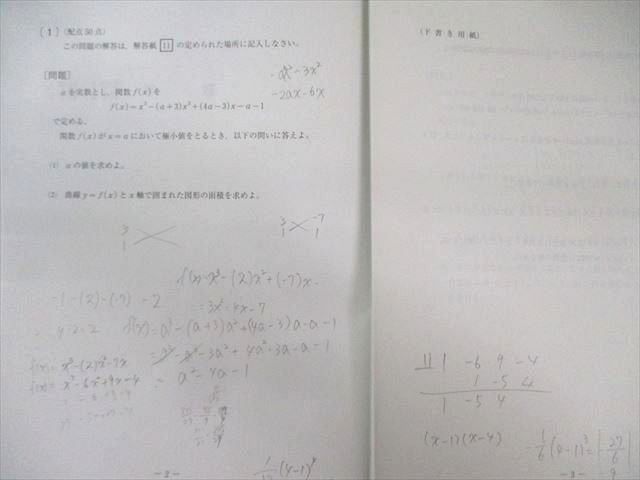 [1] (配点50点)
この問題の解答は、解答紙 11 の定められた場所に記入しなさい。
[問題]
aを実数とし、関数f(x)を
f(x)=x³-(a+3)x²+(4a-3)x-a-1
で定める。
関数f(x)がx=aにおいて極小値をとるとき、以下の問いに答えよ。
(1) aの値を求めよ。
(2) 曲線y=f(x)とx軸で囲まれた図形の面積を求めよ。
-ax²-3x²
-2ax-6x
3
1
3 -7
1 1
f(x)=x³-(2)x²+(-7)x
-1-(2)-(-7)-2
=3x²-4x-7
= 4-2=2
f(x)=a³-(a+3)a²+(4a-3)a-a-1
=a³-a³-3a²+4a²-3a-a-1
= a²-4a-1
f(x)=x³-(2)x²-7x
f(x)=x³-6x²+9x-4
(4-1)⁴
-2-
(下書き用紙)
1 1 -6 9 -4
1 -5 4
1 -5 4
(x-1)(x-4)
-1/6(4-1)³=-27/6
-3-